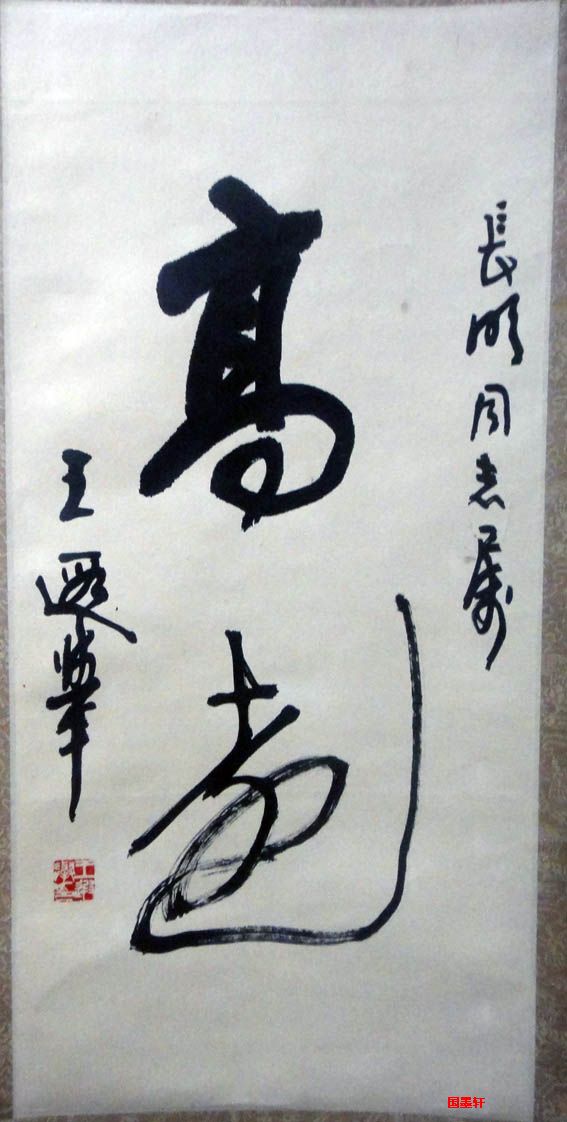 長明同志属
高遠
王遐舉
国墨轩